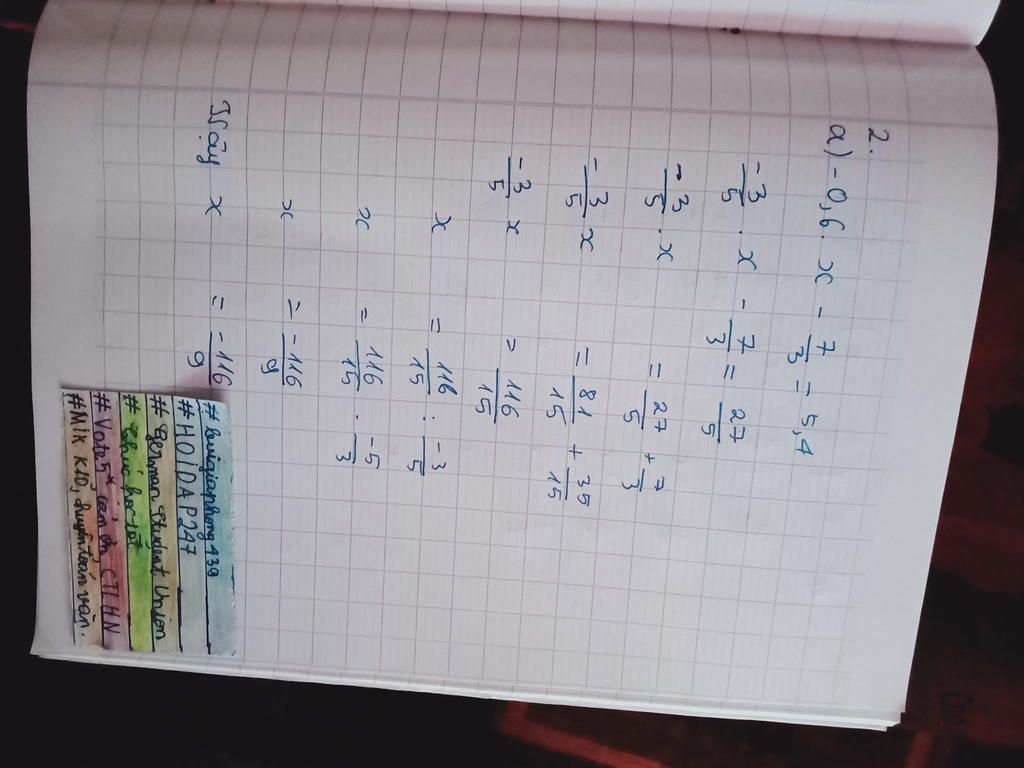 2.
a) -0,6. x - 7/3 = 5,4
-3/5 . x - 7/3 = 27/5
-3/5 . x = 27/5 + 7/3
-3/5 x = 81/15 + 35/15
-3/5 x = 116/15
x = 116/15 : -3/5
x = 116/15 . -5/3
x = -116/9
Vậy x = -116/9
#HOIDAP247
# German Student Union
# Chúc học tốt
# Vote 5* cảm ơn, CTLHN
#Mik k10, chuyên toán văn.